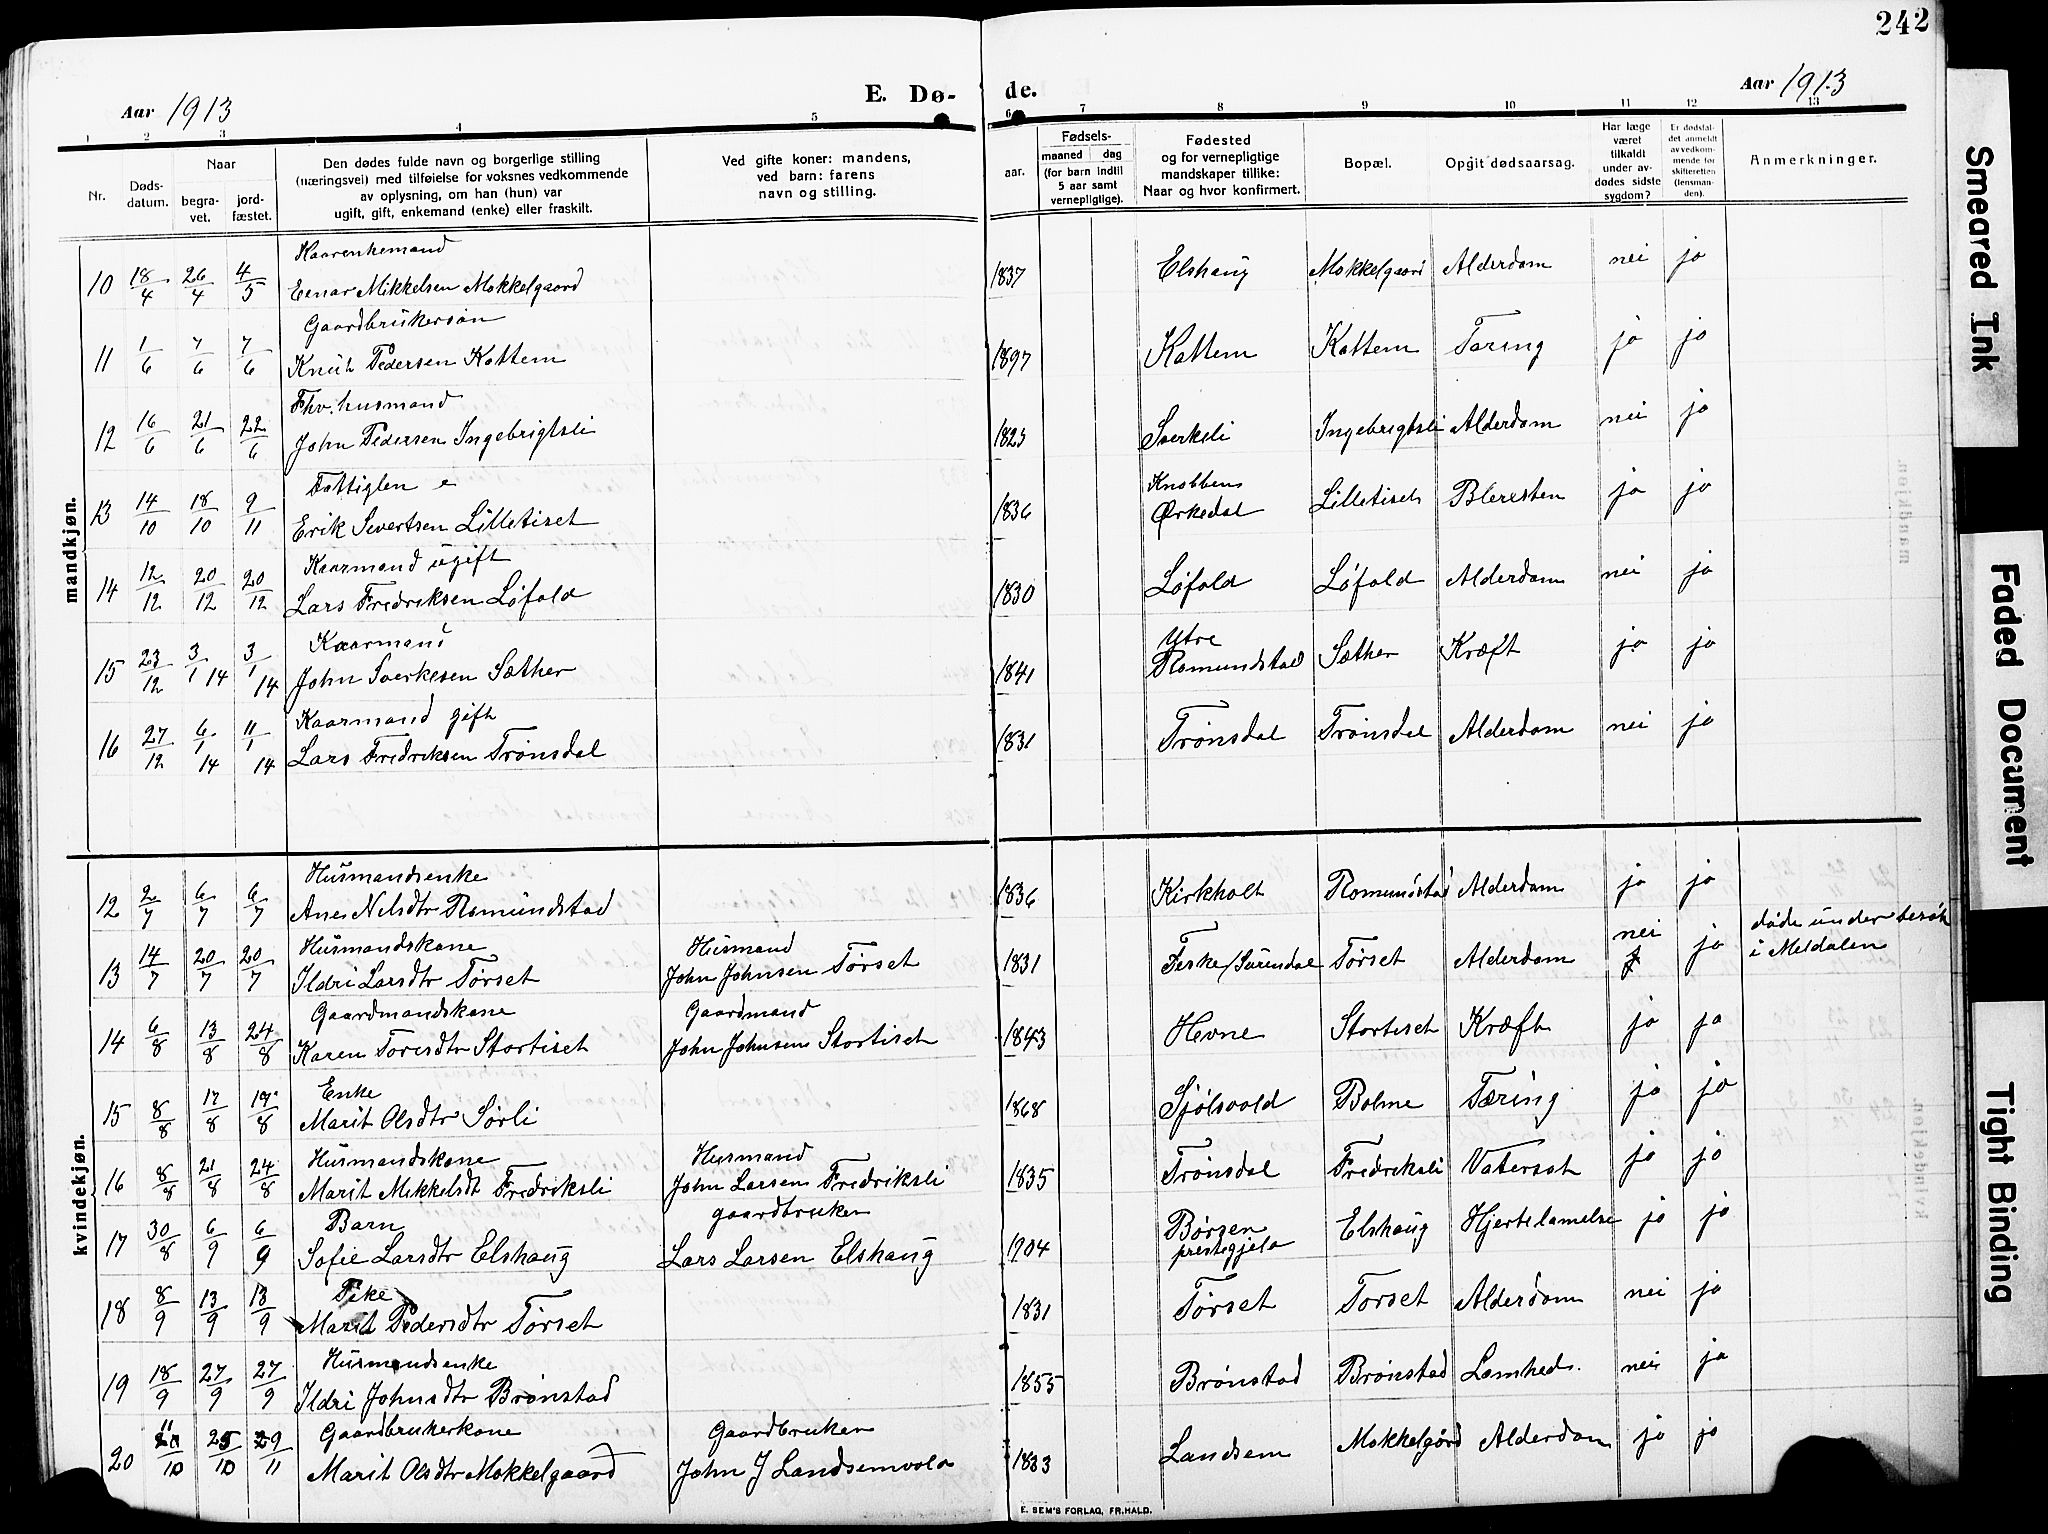 242
Aar 1913 E. Dø- de. Aar 1913
1 2 3 4 5 6 7 8 9 10 11 12 13
Nr.
Døds-
datum.
Naar
begra-
vet.
jord-
fæstet.
Den dødes fulde navn og borgerlige stilling
(næringsvei) med tilføielse for voksnes vedkommende
av oplysning, om han (hun) var
ugift, gift, enkemand (enke) eller fraskilt.
Ved gifte koner: mandens,
ved barn: farens
navn og stilling.
aar.
Fødsels-
maaned dag
(for barn indtil
5 aar samt
vernepligtige).
Fødested
og for vernepligtige
mandskaper tillike:
Naar og hvor konfirmert.
Bopæl.
Opgit dødsaarsag.
Har læge
været
tilkaldt
under av-
dødes sidste
sygdom?
Er dødsfal-
det anmeldt
av vedkom-
mende for
skifteretten
(lensman-
den).
Anmerkninger.
mandkjøn.
Kaarenkemand
10 18/4 26/4 4/5 Einar Mikkelsen Mokkelgaard 1837 Elshaug Mokkelgaard Alderdom nei jo
Gaardbrukersøn
11 1/6 7/6 7/6 Knut Pedersen Kattem 1897 Kattem Kattem Tæring jo jo
Fhv. husmand
12 16/6 21/6 22/6 John Pedersen Ingebrigtsli 1825 Sverksli Ingebrigtsli Alderdom nei jo
Fattiglem e
13 14/10 18/10 9/11 Erik Sivertsen Lilletiset 1836 Knobben
Ørkedal Lilletiset Blæresten jo jo
Kaarmand ugift
14 12/12 20/12 20/12 Lars Fredriksen Løfald 1830 Løfald Løfald Alderdom nei jo
Kaarmand
15 23/12 3/1 14 3/1 14 John Sverkesen Sæther 1841 Ytre
Romundstad Sæther Kræft jo jo
Kaarmand gift
16 27/12 6/1 14 11/1 14 Lars Fredriksen Trønsdal 1831 Trønsdal Trønsdal Alderdom nei jo
kvindekjøn.
Husmandsenke
12 2/7 6/7 6/7 Ane Nilsdtr Romundstad 1836 Kirkholt Romundstad Alderdom jo jo
Husmandskone Husmand
13 14/7 20/7 20/7 Ildri Larsdtr Tørset John Johnsen Tørset 1831 Feske/Surendal Tørset Alderdom nei jo døde under besøk
i Meldalen
Gaardmandskone Gaardmand
14 6/8 13/8 24/8 Karen Toresdtr Stortiset John Johnsen Stortiset 1843 Hevne Stortiset Kræft jo jo
Enke
15 8/8 17/8 17/8 Marit Olsdtr Sørli 1868 Sjølsvold Bolme Tæring jo jo
Husmandskone Husmand
16 8/8 21/8 24/8 Marit Mikkelsdt Fredriksli John Larsen Fredriksli 1835 Trønsdal Fredriksli Vatersot jo jo
Barn gaardbruker
17 30/8 6/9 6/9 Sofie Larsdtr Elshaug Lars Larsen Elshaug 1904 Børsen
prestegjeld Elshaug Hjertelamelse jo jo
Pike
18 8/9 13/9 13/9 Marit Pedersdtr Tørset 1831 Tørset Torset Alderdom nei jo
Husmandsenke
19 18/9 27/9 27/9 Ildri Johnsdtr Brønstad 1855 Brønstad Brønstad Lamhed. nei jo
Gaardbrukerkone Gaardbruker
20 11/10 25/10 29/11 Marit Olsdtr Mokkelgaard John J Landsemvold 1833 Landsem Mokkelgård Alderdom jo jo
E. SEM'S FORLAG, FR.HALD.
Smeared Ink
Faded Document
Tight Binding